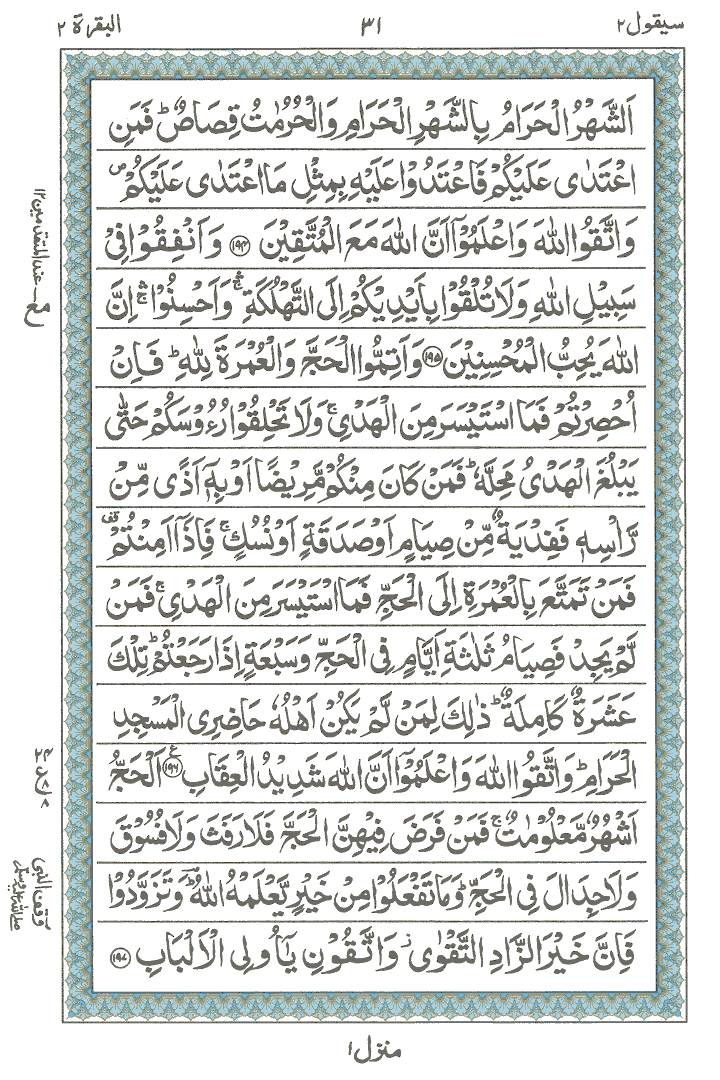 سيقول٢ ٣١ البقرة ٢
اَلشَّهْرُ الْحَرَامُ بِالشَّهْرِ الْحَرَامِ وَالْحُرُمٰتُ قِصَاصٌ ؕ فَمَنِ
اعْتَدٰى عَلَيْكُمْ فَاعْتَدُوْا عَلَيْهِ بِمِثْلِ مَا اعْتَدٰى عَلَيْكُمْ ۪
وَاتَّقُوا اللّٰهَ وَاعْلَمُوْۤا اَنَّ اللّٰهَ مَعَ الْمُتَّقِيْنَ ﴿۱۹۴﴾ وَاَنْفِقُوْا فِىْ
سَبِيْلِ اللّٰهِ وَلَا تُلْقُوْا بِاَيْدِيْكُمْ اِلَى التَّهْلُكَةِ ۛۚ وَاَحْسِنُوْا ۛۚ اِنَّ
اللّٰهَ يُحِبُّ الْمُحْسِنِيْنَ ﴿۱۹۵﴾ وَاَتِمُّوا الْحَجَّ وَالْعُمْرَةَ لِلّٰهِ ؕ فَاِنْ
اُحْصِرْتُمْ فَمَا اسْتَيْسَرَ مِنَ الْهَدْىِ ۚ وَلَا تَحْلِقُوْا رُءُوْسَكُمْ حَتّٰى
يَبْلُغَ الْهَدْىُ مَحِلَّهٗ ؕ فَمَنْ كَانَ مِنْكُمْ مَّرِيْضًا اَوْ بِهٖۤ اَذًى مِّنْ
رَّاْسِهٖ فَفِدْيَةٌ مِّنْ صِيَامٍ اَوْ صَدَقَةٍ اَوْ نُسُكٍ ۚ فَاِذَاۤ اَمِنْتُمْ ۥقف
فَمَنْ تَمَتَّعَ بِالْعُمْرَةِ اِلَى الْحَجِّ فَمَا اسْتَيْسَرَ مِنَ الْهَدْىِ ۚ فَمَنْ
لَّمْ يَجِدْ فَصِيَامُ ثَلٰثَةِ اَيَّامٍ فِى الْحَجِّ وَسَبْعَةٍ اِذَا رَجَعْتُمْ ؕ تِلْكَ
عَشَرَةٌ كَامِلَةٌ ؕ ذٰلِكَ لِمَنْ لَّمْ يَكُنْ اَهْلُهٗ حَاضِرِى الْمَسْجِدِ
الْحَرَامِ ؕ وَاتَّقُوا اللّٰهَ وَاعْلَمُوْۤا اَنَّ اللّٰهَ شَدِيْدُ الْعِقَابِ ﴿۱۹۶﴾ع اَلْحَجُّ
اَشْهُرٌ مَّعْلُوْمٰتٌ ۚ فَمَنْ فَرَضَ فِيْهِنَّ الْحَجَّ فَلَا رَفَثَ وَلَا فُسُوْقَ
وَلَا جِدَالَ فِى الْحَجِّ ؕ وَمَا تَفْعَلُوْا مِنْ خَيْرٍ يَّعْلَمْهُ اللّٰهُ ؕ وَتَزَوَّدُوْا
فَاِنَّ خَيْرَ الزَّادِ التَّقْوٰى ۫ وَاتَّقُوْنِ يٰۤاُولِى الْاَلْبَابِ ﴿۱۹۷﴾
مع عند المتقدمين ١٢
وقف النبى صلى الله عليه وسلم
منزل ١